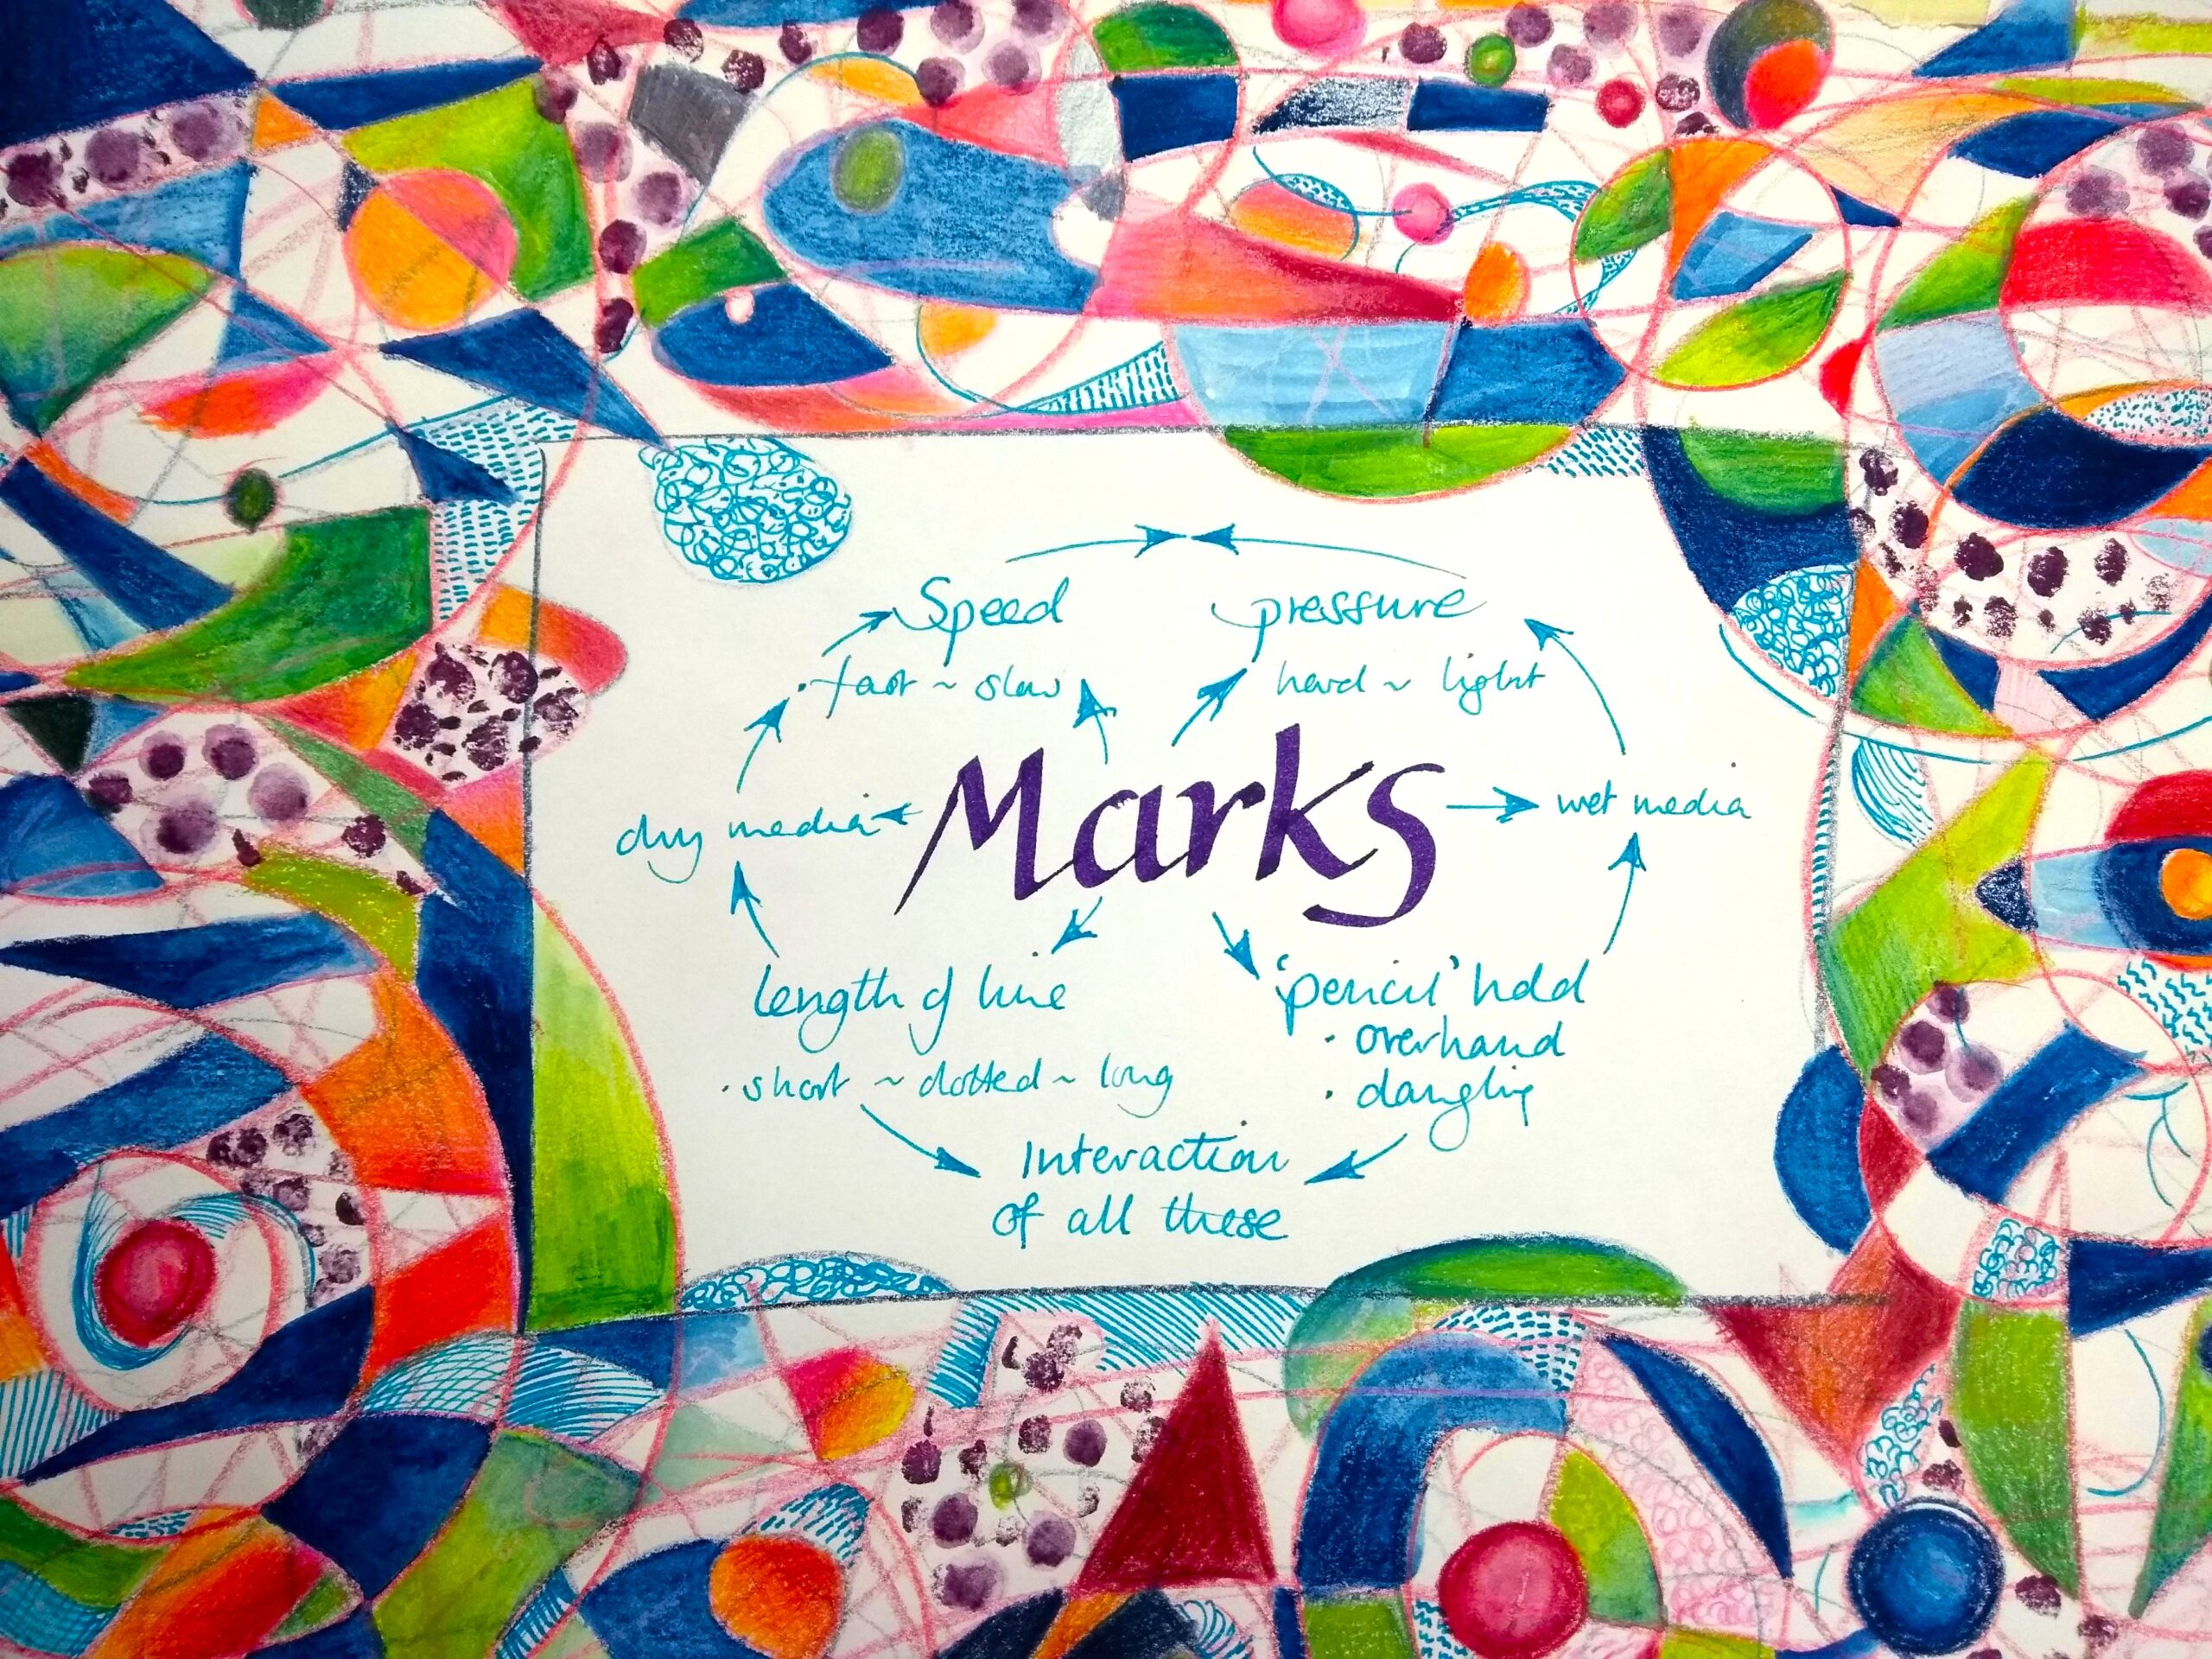 Speed
pressure
· fast ~ slow
hard ~ light
Marks
dry media
wet media
length of line
'pencil' hold
· overhand
· short ~ dotted ~ long
· dangling
Interaction
of all these